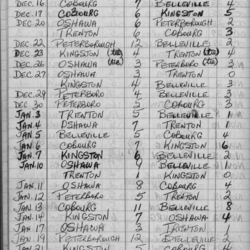 DEC. 16 COBOURG 7 BELLEVILLE 4
DEC. 17 COBOURG 6 KINGSTON
DEC 20 OSHAWA 6 COBOURG 2
TRENTON 6 COBOURG 3
DEC. 22 PETERBOROUGH 12 BELLEVILLE 2
DEC. 23 KINGSTON 4 TRENTON
DEC. 26 OSHAWA 3 PETERBORO 3
DEC 27 OSHAWA 3 TRENTON 0
KINGSTON 4 BELLEVILLE 3
DEC. 29 PETERBORO 4 BELLEVILLE 3
DEC 30 PETERBORO 5 COBOURG 3
JAN 3 TRENTON 5 BELLEVILLE 1
JAN 4 OSHAWA 7 TRENTON 1
JAN. 5 BELLEVILLE 5 COBOURG 4
JAN. 6 COBOURG 6 KINGSTON
JAN. 7 KINGSTON 6 BELLEVILLE 2
JAN. 10 OSHAWA BELLEVILLE 1
TRENTON 1 KINGSTON 0
JAN. 11 OSHAWA 8 COBOURG 4
JAN. 12 PETERBORO 5 TRENTON 2
JAN. 13 COBOURG BELLEVILLE 8
JAN. 14 KINGSTON 7 OSHAWA 4
JAN. 17 OSHAWA 3 TRENTON 1
JAN. 19 PETERBOROUGH 12 BELLEVILLE 6
JAN. 21 KINGSTON 5 COBOURG